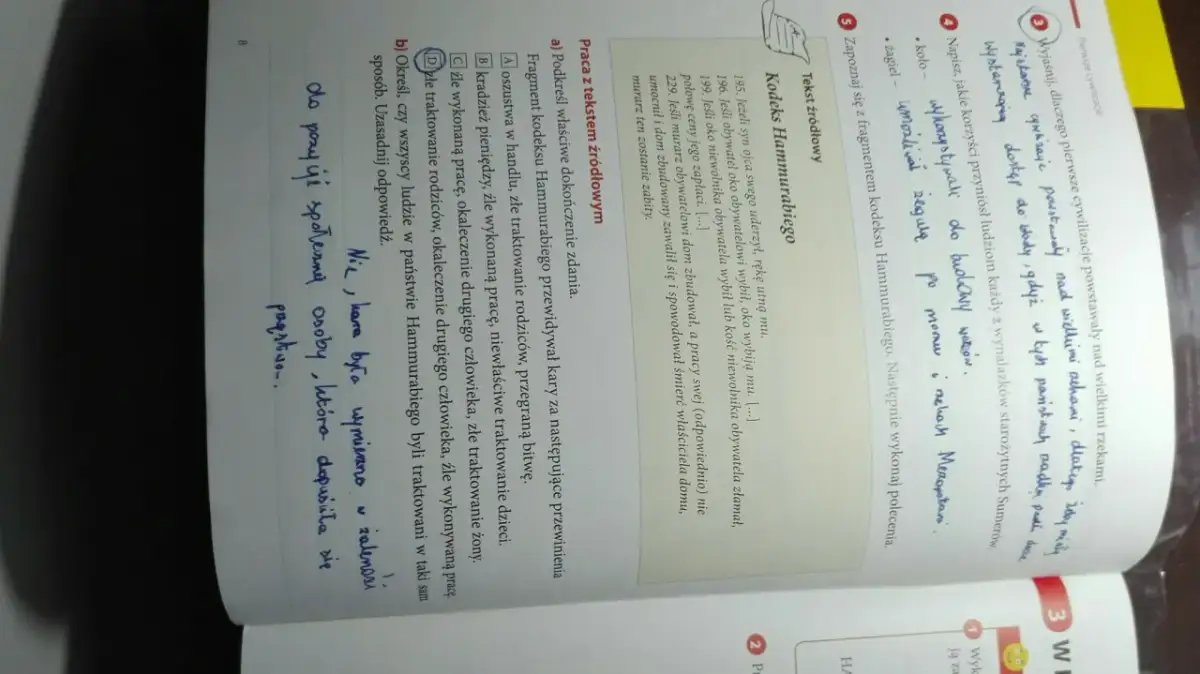 Pierwsze cywilizacje
3 Wyjaśnij, dlaczego pierwsze cywilizacje powstawały nad wielkimi rzekami.
cywilizacje powstawały nad wielkimi rzekami, dlatego żeby miały
dostęp do wody, gdyż w tych państwach
4 Napisz, jakie korzyści przyniósł ludziom każdy z wynalazków starożytnych Sumerów.
• koło – wykorzystywali do budowy wozów.
• żagiel – żeglugę po morzu i rzekach Mezopotamii.
5 Zapoznaj się z fragmentem kodeksu Hammurabiego. Następnie wykonaj polecenia.
Tekst źródłowy
Kodeks Hammurabiego
195. Jeżeli syn ojca swego uderzył, rękę utną mu.
196. Jeśli obywatel oko obywatelowi wybił, oko wybiją mu. [...]
199. Jeśli oko niewolnika obywatela wybił lub kość niewolnika obywatela złamał,
połowę ceny jego zapłaci. [...]
229. Jeśli murarz obywatelowi dom zbudował, a pracy swej (odpowiednio) nie
umocnił i dom zbudowany zawalił się i spowodował śmierć właściciela domu,
murarz ten zostanie zabity.
Praca z tekstem źródłowym
a) Podkreśl właściwe dokończenie zdania.
Fragment kodeksu Hammurabiego przewidywał kary za następujące przewinienia
A oszustwa w handlu, złe traktowanie rodziców, przegraną bitwę.
B kradzież pieniędzy, źle wykonaną pracę, niewłaściwe traktowanie dzieci.
C źle wykonaną pracę, okaleczenie drugiego człowieka, złe traktowanie żony.
D złe traktowanie rodziców, okaleczenie drugiego człowieka, źle wykonywaną pracę
b) Określ, czy wszyscy ludzie w państwie Hammurabiego byli traktowani w taki sam
sposób. Uzasadnij odpowiedź.
Nie, kara była wymierzano w zależności
do pozycji społecznej osoby, która dopuściła się
8
3 W
1 Wyk
ją za
HA
2